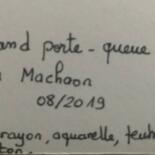 and porte-queue
Machaon
08/2019
rayon, aquarelle,